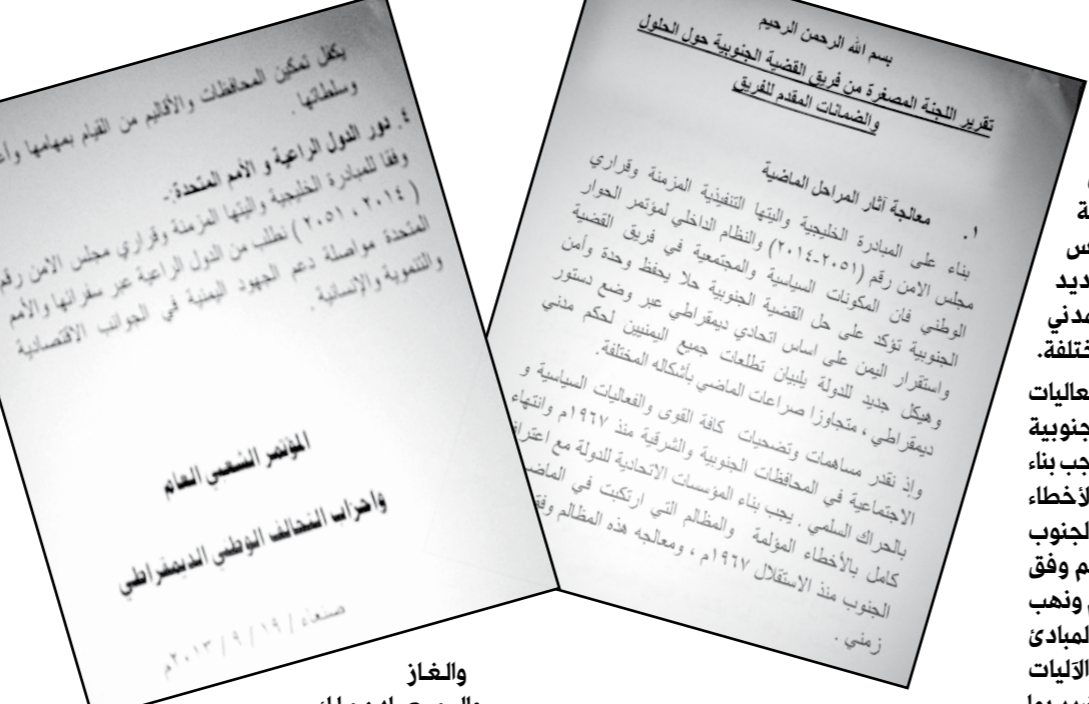 بسم الله الرحمن الرحيم
تقرير اللجنة المصغرة من فريق القضية الجنوبية حول الحلول
والضمانات المقدم للفريق
١. معالجة آثار المراحل الماضية
بناء على المبادرة الخليجية واليتها التنفيذية المزمنة وقراري
مجلس الامن رقم (٢٠٥١-٢٠١٤) والنظام الداخلي لمؤتمر الحوار
الوطني فان المكونات السياسية والمجتمعية في فريق القضية
الجنوبية تؤكد على حل القضية الجنوبية حلا يحفظ وحدة وأمن
واستقرار اليمن على اساس اتحادي ديمقراطي عبر وضع دستور
وهيكل جديد للدولة يلبيان تطلعات جميع اليمنيين لحكم مدني
ديمقراطي ، متجاوزا صراعات الماضي بأشكاله المختلفة.
وإذ نقدر مساهمات وتضحيات كافة القوى والفعاليات السياسية و
الاجتماعية في المحافظات الجنوبية والشرقية منذ ١٩٦٧م وانتهاء
بالحراك السلمي . يجب بناء المؤسسات الاتحادية للدولة مع
كامل بالأخطاء المؤلمة والمظالم التي ارتكبت في
الجنوب منذ الاستقلال ١٩٦٧م ، ومعالجه هذه المظالم
زمني .
يكفل تمكين المحافظات والأقاليم من القيام بمهامها
وسلطاتها .
٤. دور الدول الراعية و الأمم المتحدة:-
وفقا للمبادرة الخليجية واليتها المزمنة وقراري مجلس الامن رقم
( ٢٠١٤ ، ٢٠٥١ ) نطلب من الدول الراعية عبر سفرائها والأمم
المتحدة مواصلة دعم الجهود اليمنية في الجوانب الاقتصادية
والتنموية والإنسانية .
المؤتمر الشعبي العام
واحزاب التحالف الوطني الديمقراطي
صنعاء / ١٩ / ٩ / ٢٠١٣م
ديد
مدني
ختلفة.
عاليات
جنوبية
جب بناء
لأخطاء
لجنوب
م وفق
ونهب
لمبادئ
الآليات
والغاز